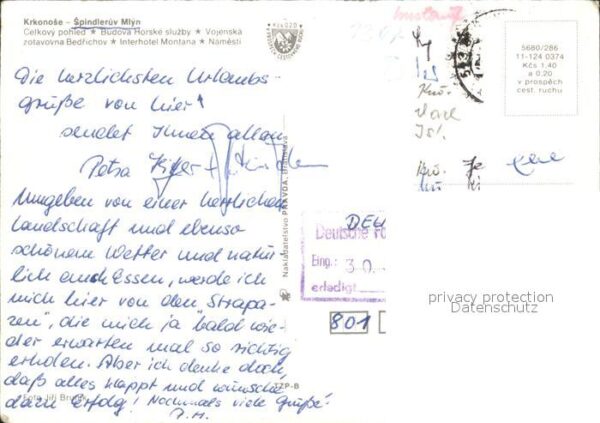 Krkonoše – Špindlerův Mlýn
Celkový pohled ★ Budova Horské služby ★ Vojenská
zotavovna Bedřichov ★ Interhotel Montana ★ Náměstí
KRKONOŠE
5680/286
11-124 0374
Kčs 1,40
a 0,20
v prospěch
cest. ruchu
Die herzlichsten Urlaubs-
grüße von hier
sendet Ihnen allen
Petra
Umgeben von einer herzlichen
Landschaft und ebenso
schönem Wetter und natür-
lich auch Essen, werde ich
mich hier von den Strapa-
zen", die mich ja "bald wie-
der erwarten mal so richtig
erholen. Aber ich denke doch,
daß alles klappt und wünsche
dazu Erfolg! Nochmals viele Grüße!
P.H.
Nakladatelstvo PRAVDA, Bratislava
Foto Jiří
ZP-B
Deutsche
Eing.: 30.
erledigt
801
privacy protection
Datenschutz